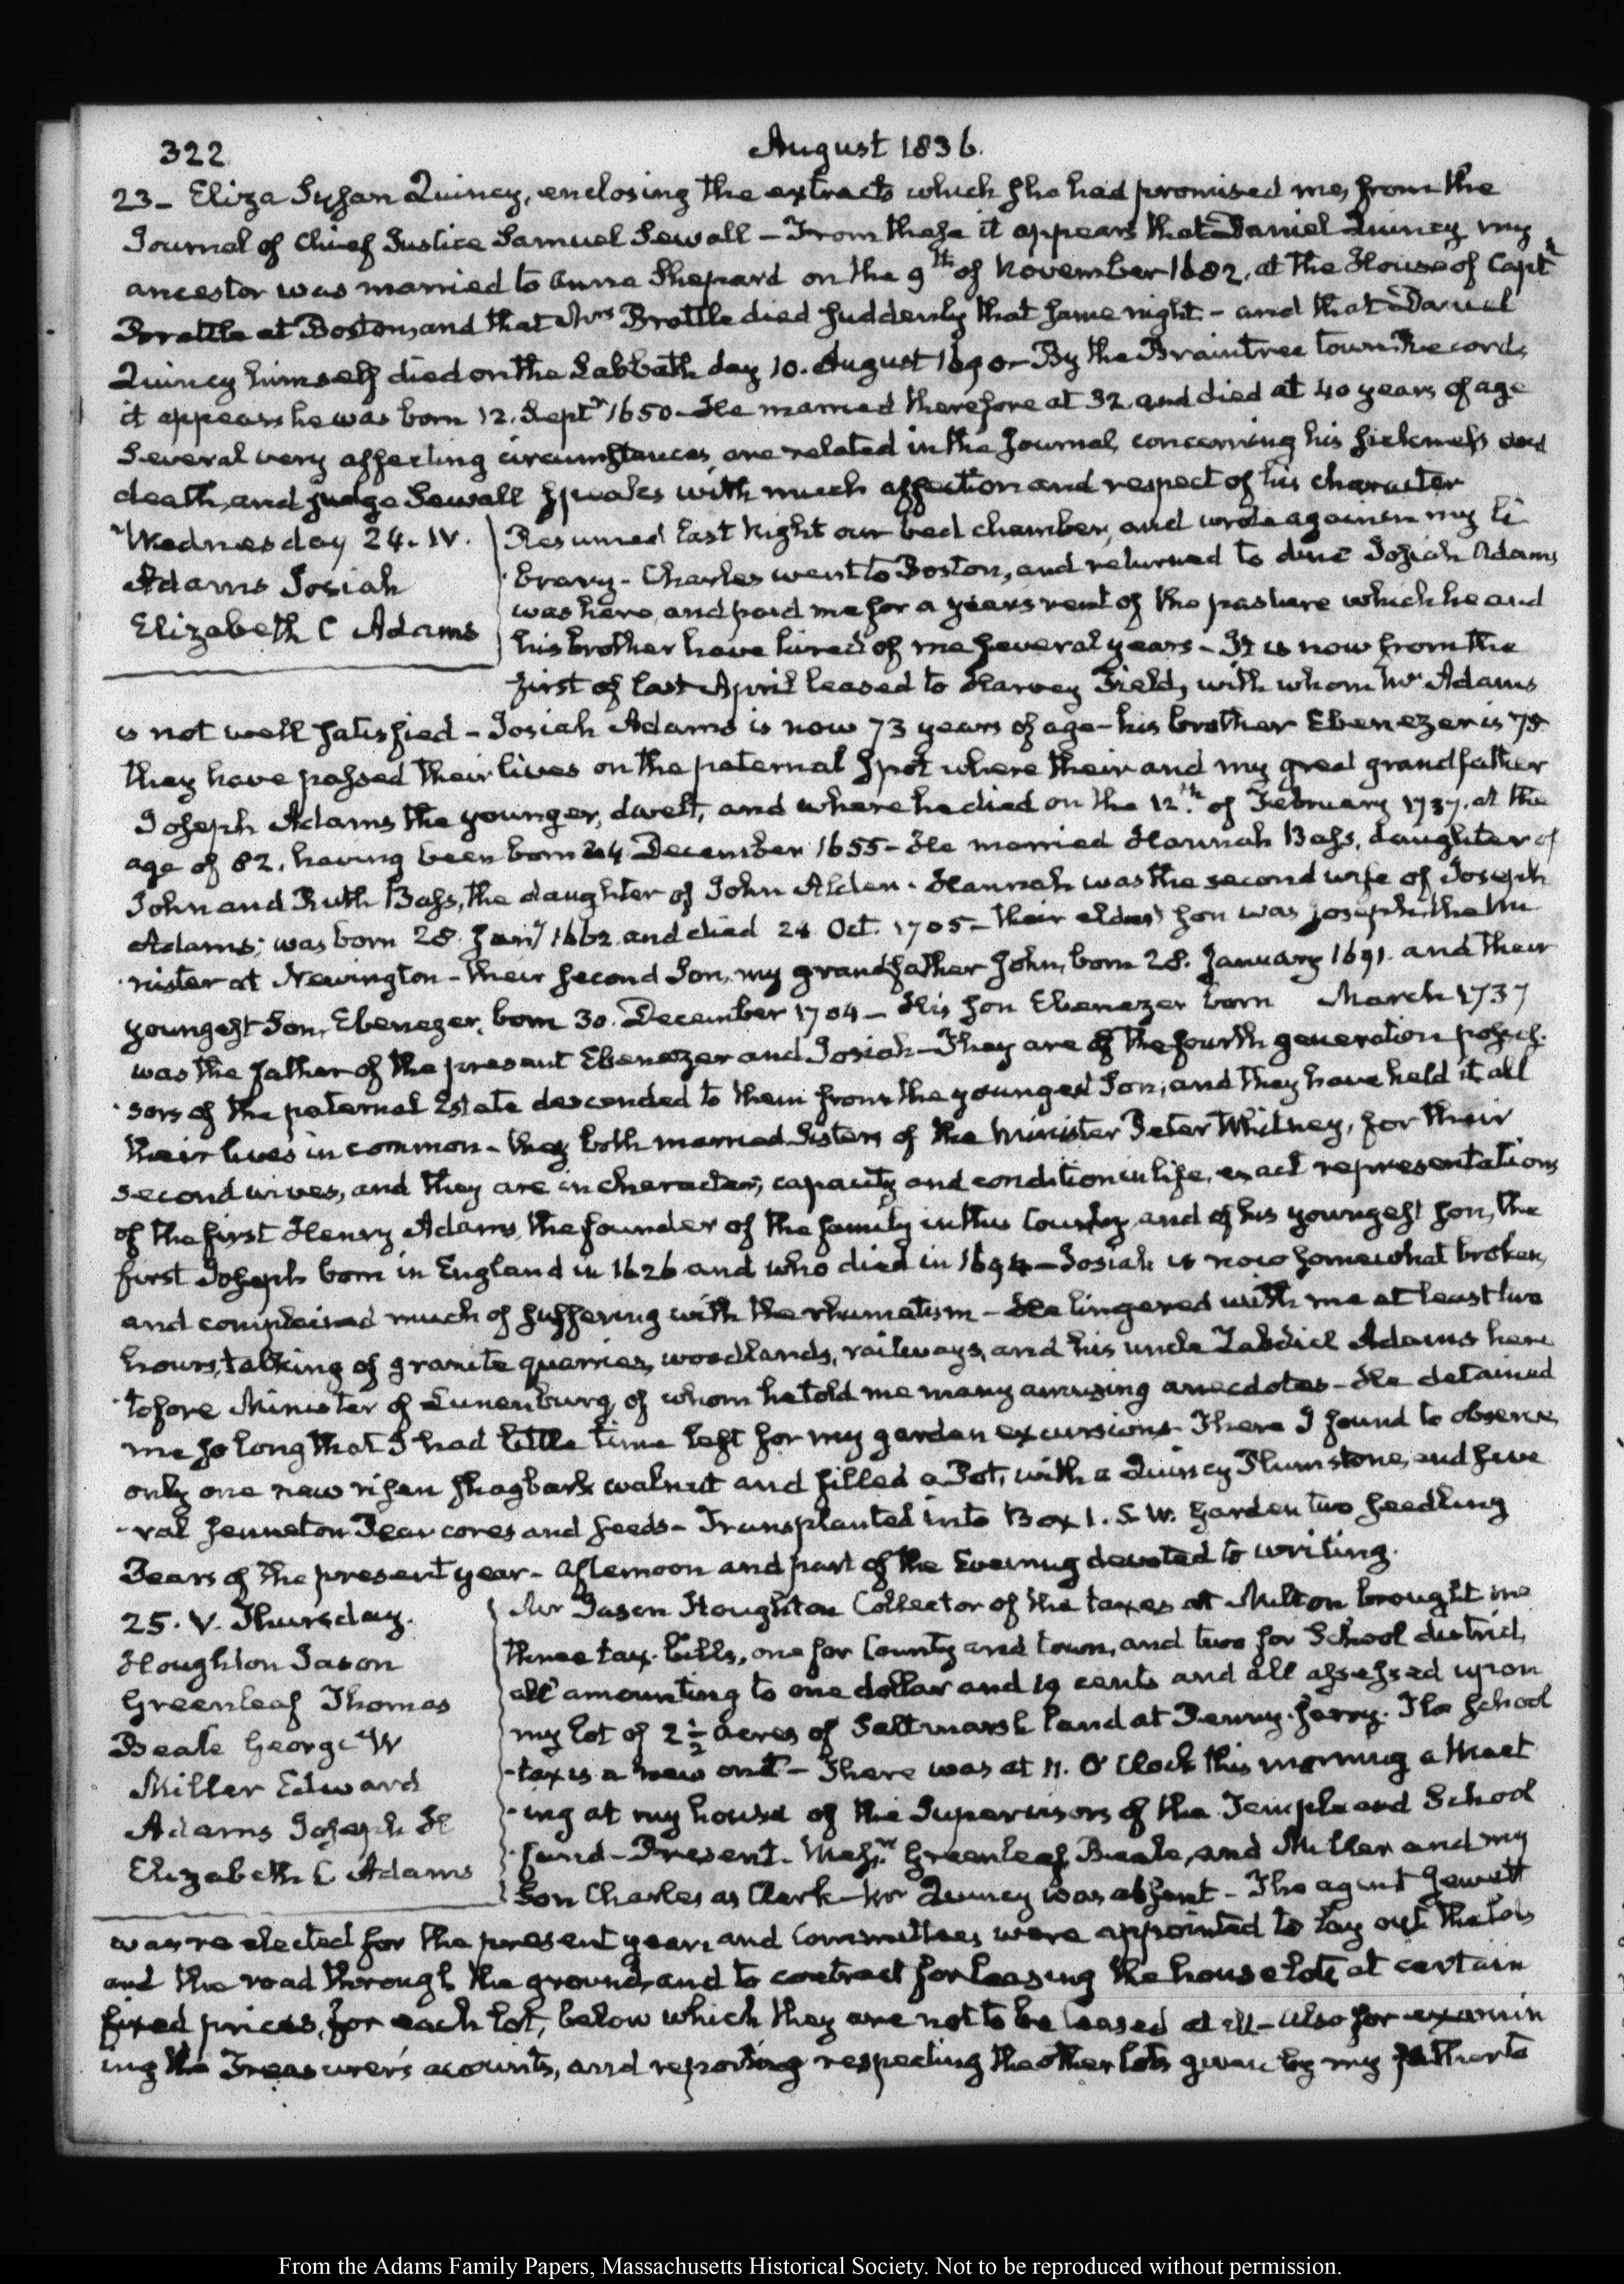 322
August 1836.
23 - Eliza Susan Quincy, enclosing the extracts which she had promised me, from the
Journal of Chief Justice Samuel Sewall - From these it appears that Daniel Quincy my
ancestor was married to Anna Shepard on the 9th of November 1682. at the House of Captn
Brattle at Boston, and that Mrs Brattle died suddenly that same night - and that Daniel
Quincy himself died on the Sabbath day 10. August 1690 - By the Braintree town Records
it appears he was born 12. Septr 1650 - He married therefore at 32 and died at 40 years of age
Several very affecting circumstances are related in the Journal, concerning his sickness and
death, and Judge Sewall speaks with much affection and respect of his character
Wednesday 24. IV.
Adams Josiah
Elizabeth C Adams
Resumed last Night our bed chamber, and wrote again in my li
brary - Charles went to Boston, and returned to dine Josiah Adams
was here, and paid me for a years rent of the pasture which he and
his brother have hired of me several years - It is now from the
first of last April leased to Harvey Field, with whom Mr Adams
is not well satisfied - Josiah Adams is now 73 years of age - his brother Ebenezer is 78
they have passed their lives on the paternal spot where their and my great grandfather
Joseph Adams the younger, dwelt, and where he died on the 12th of February 1737. at the
age of 82. having been born 24 December 1655 - He married Hannah Bass, daughter of
John and Ruth Bass, the daughter of John Alden. Hannah was the second wife of Joseph
Adams; was born 28. Jany 1662 and died 24 Oct. 1705 - their eldest son was Joseph, the Mi
nister at Newington - their second Son, my grandfather John, born 28. January 1691. and their
youngest Son, Ebenezer, born 30. December 1704 - His son Ebenezer born March 1737
was the father of the present Ebenezer and Josiah - They are of the fourth generation posses-
sors of the paternal Estate descended to them from the youngest Son, and they have held it all
their lives in common - they both married Sisters of the Minister Peter Whitney, for their
second wives, and they are in character, capacity and condition in life, exact representations
of the first Henry Adams, the founder of the family in this Country, and of his youngest son, the
first Joseph born in England in 1626 and who died in 1694 - Josiah is now somewhat broken,
and complained much of suffering with the rhumatism - He lingered with me at least two
hours, talking of granite quarries, woodlands, railways, and his uncle Zabdiel Adams here
tofore Minister of Lunenburg, of whom he told me many amusing anecdotes - He detained
me so long that I had little time left for my garden excursions - There I found to observe
only one new risen shagbark walnut and filled a Pot, with a Quincy Plumstone, and seve
ral Jenneton Pear cores and seeds - Transplanted into Box 1. S.W. Garden two seedling
Pears of the present year - Afternoon and part of the Evening devoted to writing.
25. V. Thursday.
Houghton Jason
Greenleaf Thomas
Beale George W
Miller Edward
Adams Joseph H
Elizabeth C Adams
Mr Jason Houghton Collector of the taxes at Milton brought me
three tax-bills, one for County and town, and two for School district,
all amounting to one dollar and 19 cents and all assessed upon
my lot of 2 1/2 acres of Saltmarsh land at Penny-ferry. The School
tax is a new one - There was at 11. O'Clock this morning a Meet
ing at my house of the Supervisors of the Temple and School
fund - Present. Messrs Greenleaf, Beale, and Miller and my
Son Charles as Clerk - Mr Quincy was absent - The agent Jewett
was re elected for the present year, and Committees were appointed to lay out the lots
and the road through the ground, and to contract for leasing the house lots at certain
fixed prices, for each lot, below which they are not to be leased at all - also for examin
ing the Treasurer's accounts, and reporting respecting the other lots given by my father to
From the Adams Family Papers, Massachusetts Historical Society. Not to be reproduced without permission.